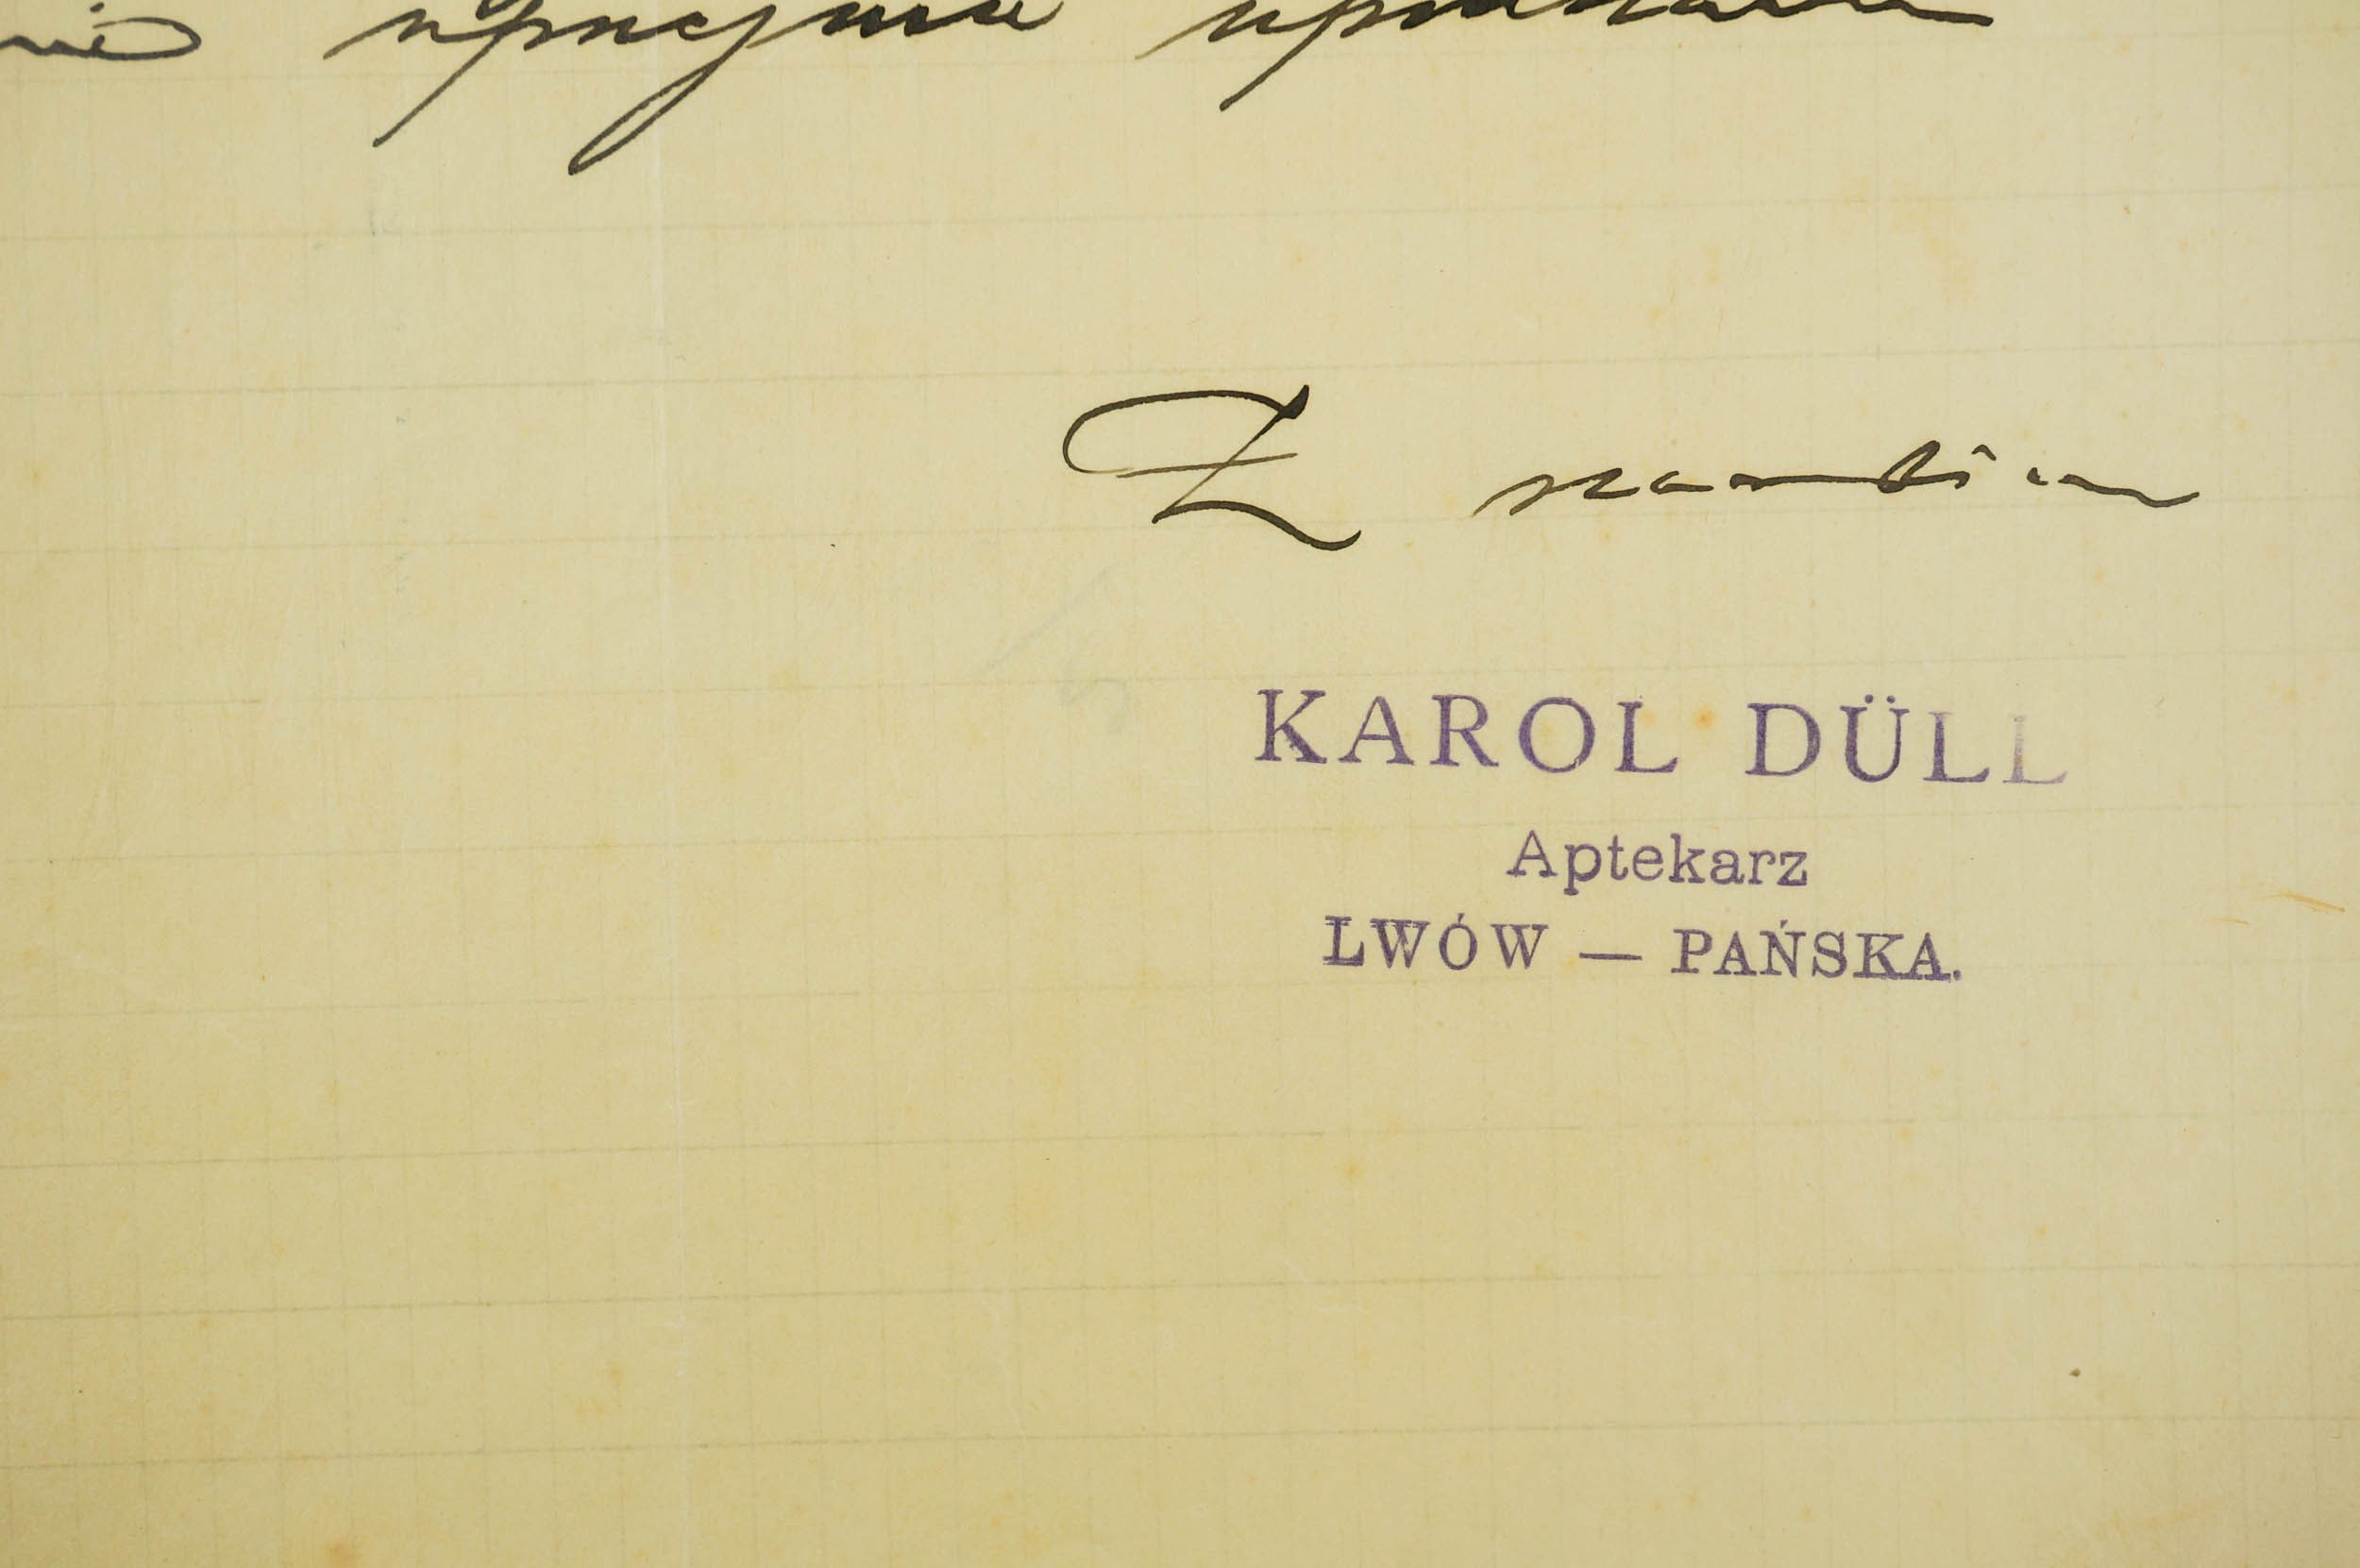 uprzejmie
Z szacunkiem
KAROL DÜLL
Aptekarz
LWÓW — PAŃSKA.